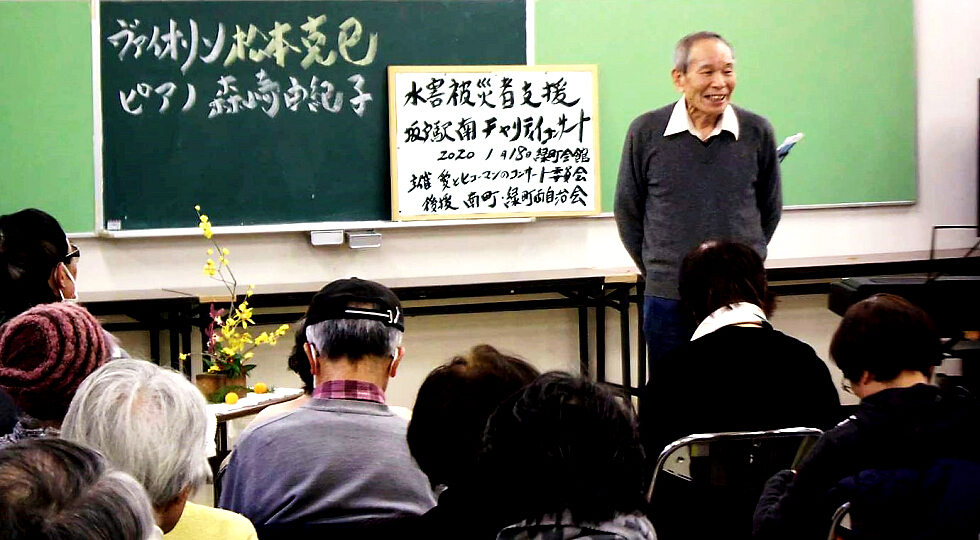 ヴァイオリン 松本克巳
ピアノ 森崎由紀子
水害被災者支援
坂戸駅南チャリティコンサート
2020 1月18日 緑町会館
主催 愛とヒューマンのコンサート委員会
後援 南町・緑町西自治会